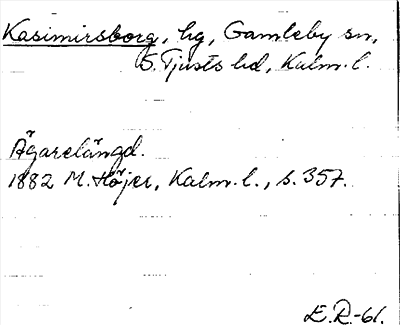 Kasimirsborg, hg, Gamleby sn,
S. Tjusts hd, Kalm. l.
Ägarelängd.
1882 M. Höjer, Kalm. l., s. 357.
E.R.-61.